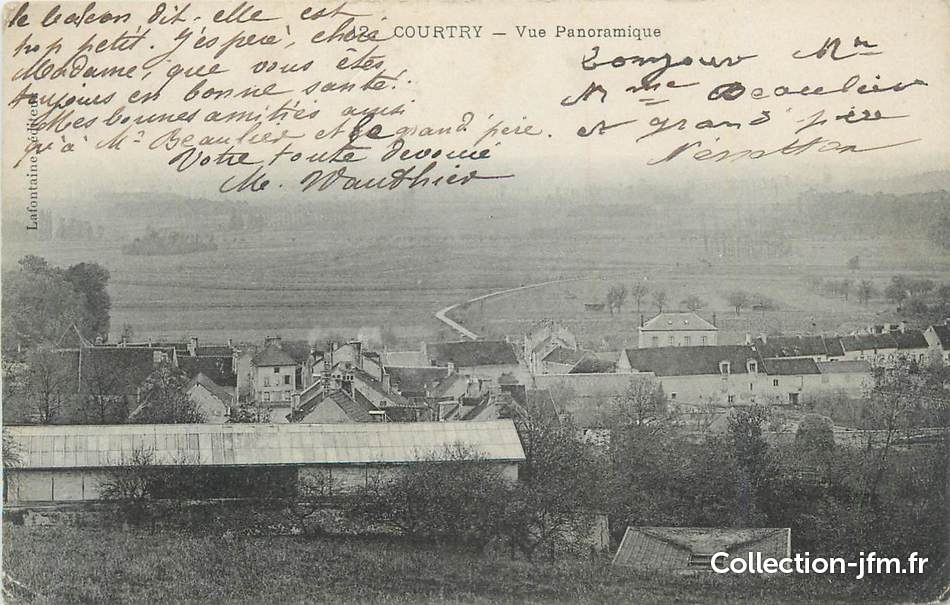 le balcon dit-elle est
trop petit. J'espère, chère
Madame, que vous êtes
toujours en bonne santé.
Mes bonnes amitiés ainsi
qu'à Mr Beaulieu et le grand père.
Votre toute dévouée
Me. Wauthier
12 COURTRY — Vue Panoramique
bonjour Mr
Mme Beaulieu
et grand père
Lafontaine, éditeur
Collection-jfm.fr